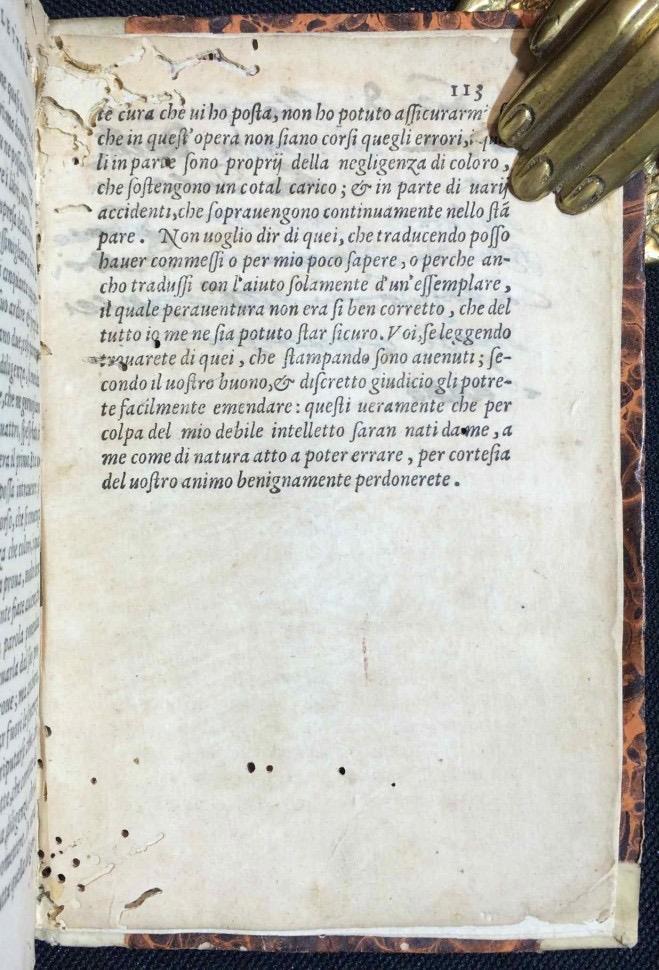 113
te cura che ui ho posta, non ho potuto assicurarmi
che in quest'opera non siano corsi quegli errori, i
li in parte sono proprij della negligenza di coloro,
che sostengono un cotal carico; & in parte di uarij
accidenti, che soprauengono continuamente nello stã
pare. Non uoglio dir di quei, che traducendo posso
hauer commessi o per mio poco sapere, o perche an-
cho tradussi con l'aiuto solamente d'un'essemplare,
il quale perauentura non era si ben corretto, che del
tutto io me ne sia potuto star sicuro. Voi, se leggendo
trouarete di quei, che stampando sono auenuti; se-
condo il uostro buono, & discretto giudicio gli potre-
te facilmente emendare: questi ueramente che per
colpa del mio debile intelletto saran nati da me, a
me come di natura atto a poter errare, per cortesia
del uostro animo benignamente perdonerete.